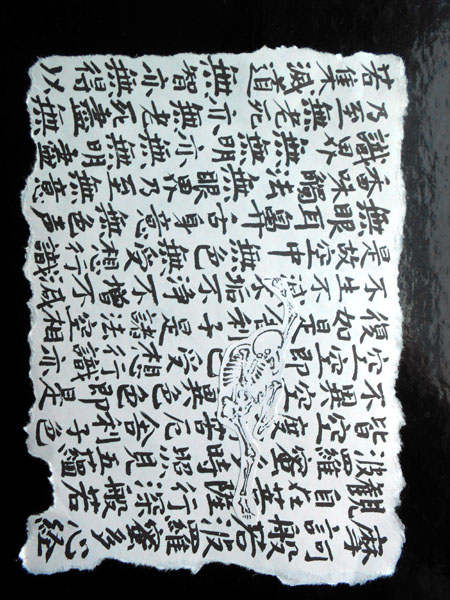 摩訶般若波羅蜜多心経
観自在菩薩行深般若
波羅蜜時照見五蘊
皆空度苦厄舎利子色
不異空空異色色即是
空空即是受想行識亦
復如是舎利子是諸法空相
不生不滅不垢不浄不増不減
是故空中無色無受想行識
無眼耳鼻舌身意無色声
香味触法無眼界乃至無意
識界無無明亦無無明尽
乃至無老死亦無老死盡無
苦集滅道無智亦無得以